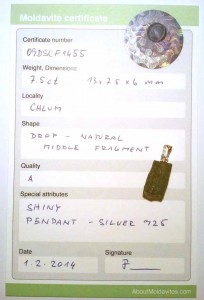 Moldavite certificate
Certificate number
09DSCF1655
Weight, Dimensions
7.5ct 13 x 25 x 6 mm
Locality
CHLUM
Shape
DROP - NATURAL
MIDDLE FRAGMENT
Quality
A
Special attributes
SHINY
PENDANT - SILVER 925
Date
Signature
1.2.2014
AboutMoldavites.com